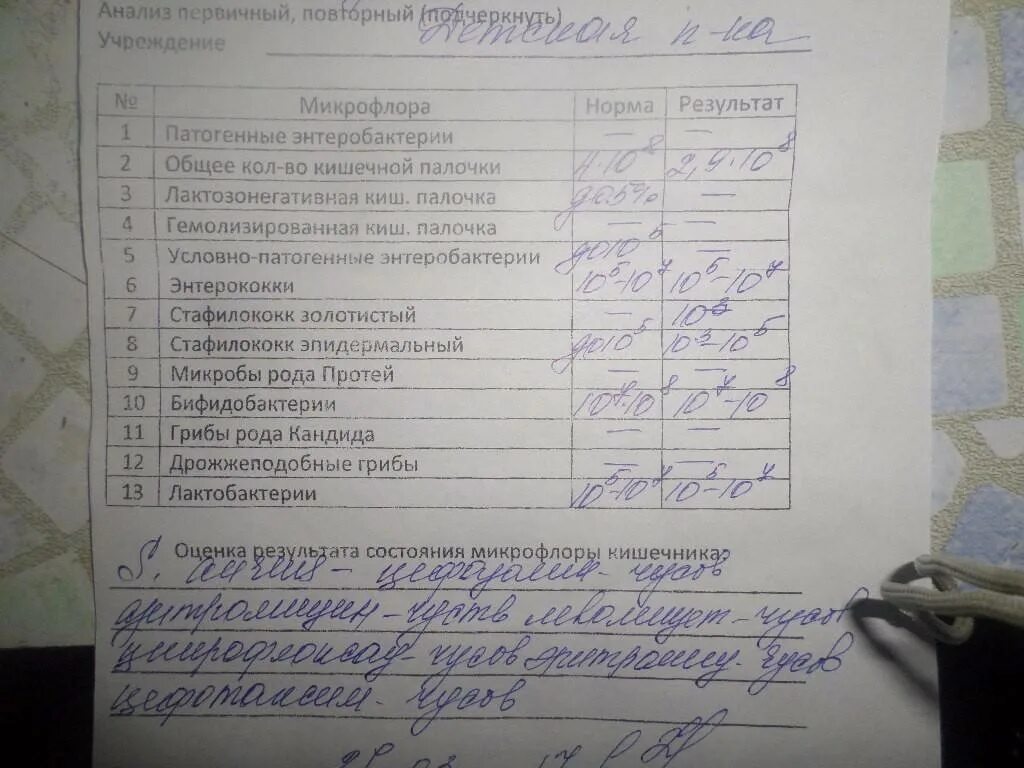 Анализ первичный, повторный (подчеркнуть)
Учреждение Детская п-ка
№ Микрофлора Норма Результат
1 Патогенные энтеробактерии — —
2 Общее кол-во кишечной палочки 4·10⁸ 2,9·10⁸
3 Лактозонегативная киш. палочка до5% —
4 Гемолизированная киш. палочка — —
5 Условно-патогенные энтеробактерии до10⁵ —
6 Энтерококки 10⁵-10⁷ 10⁵-10⁷
7 Стафилококк золотистый — 10³
8 Стафилококк эпидермальный до10⁵ 10³-10⁵
9 Микробы рода Протей — —
10 Бифидобактерии 10⁷-10⁸ 10⁷-10⁸
11 Грибы рода Кандида — —
12 Дрожжеподобные грибы — —
13 Лактобактерии 10⁵-10⁷ 10⁵-10⁷
Оценка результата состояния микрофлоры кишечника:
S. - цефазолин - чусов
- чуств левомицет - чусов
- чусов - чусов
цефотаксим - чусов